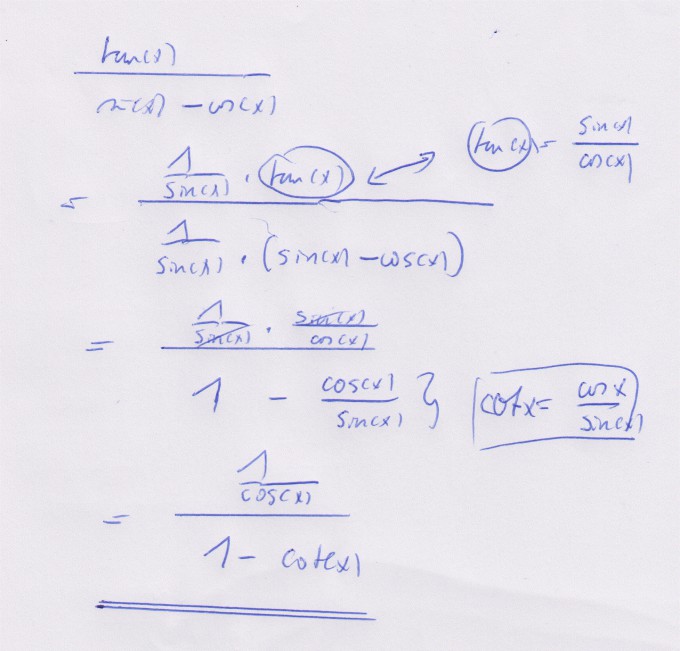 tan(x)
sin(x) - cos(x)
tan(x) = sin(x)/cos(x)
= 1/sin(x) · tan(x)
1/sin(x) · (sin(x) - cos(x))
= 1/sin(x) · sin(x)/cos(x)
1 - cos(x)/sin(x) }
cot x = cos x/sin(x)
= 1/cos(x)
1 - cot(x)